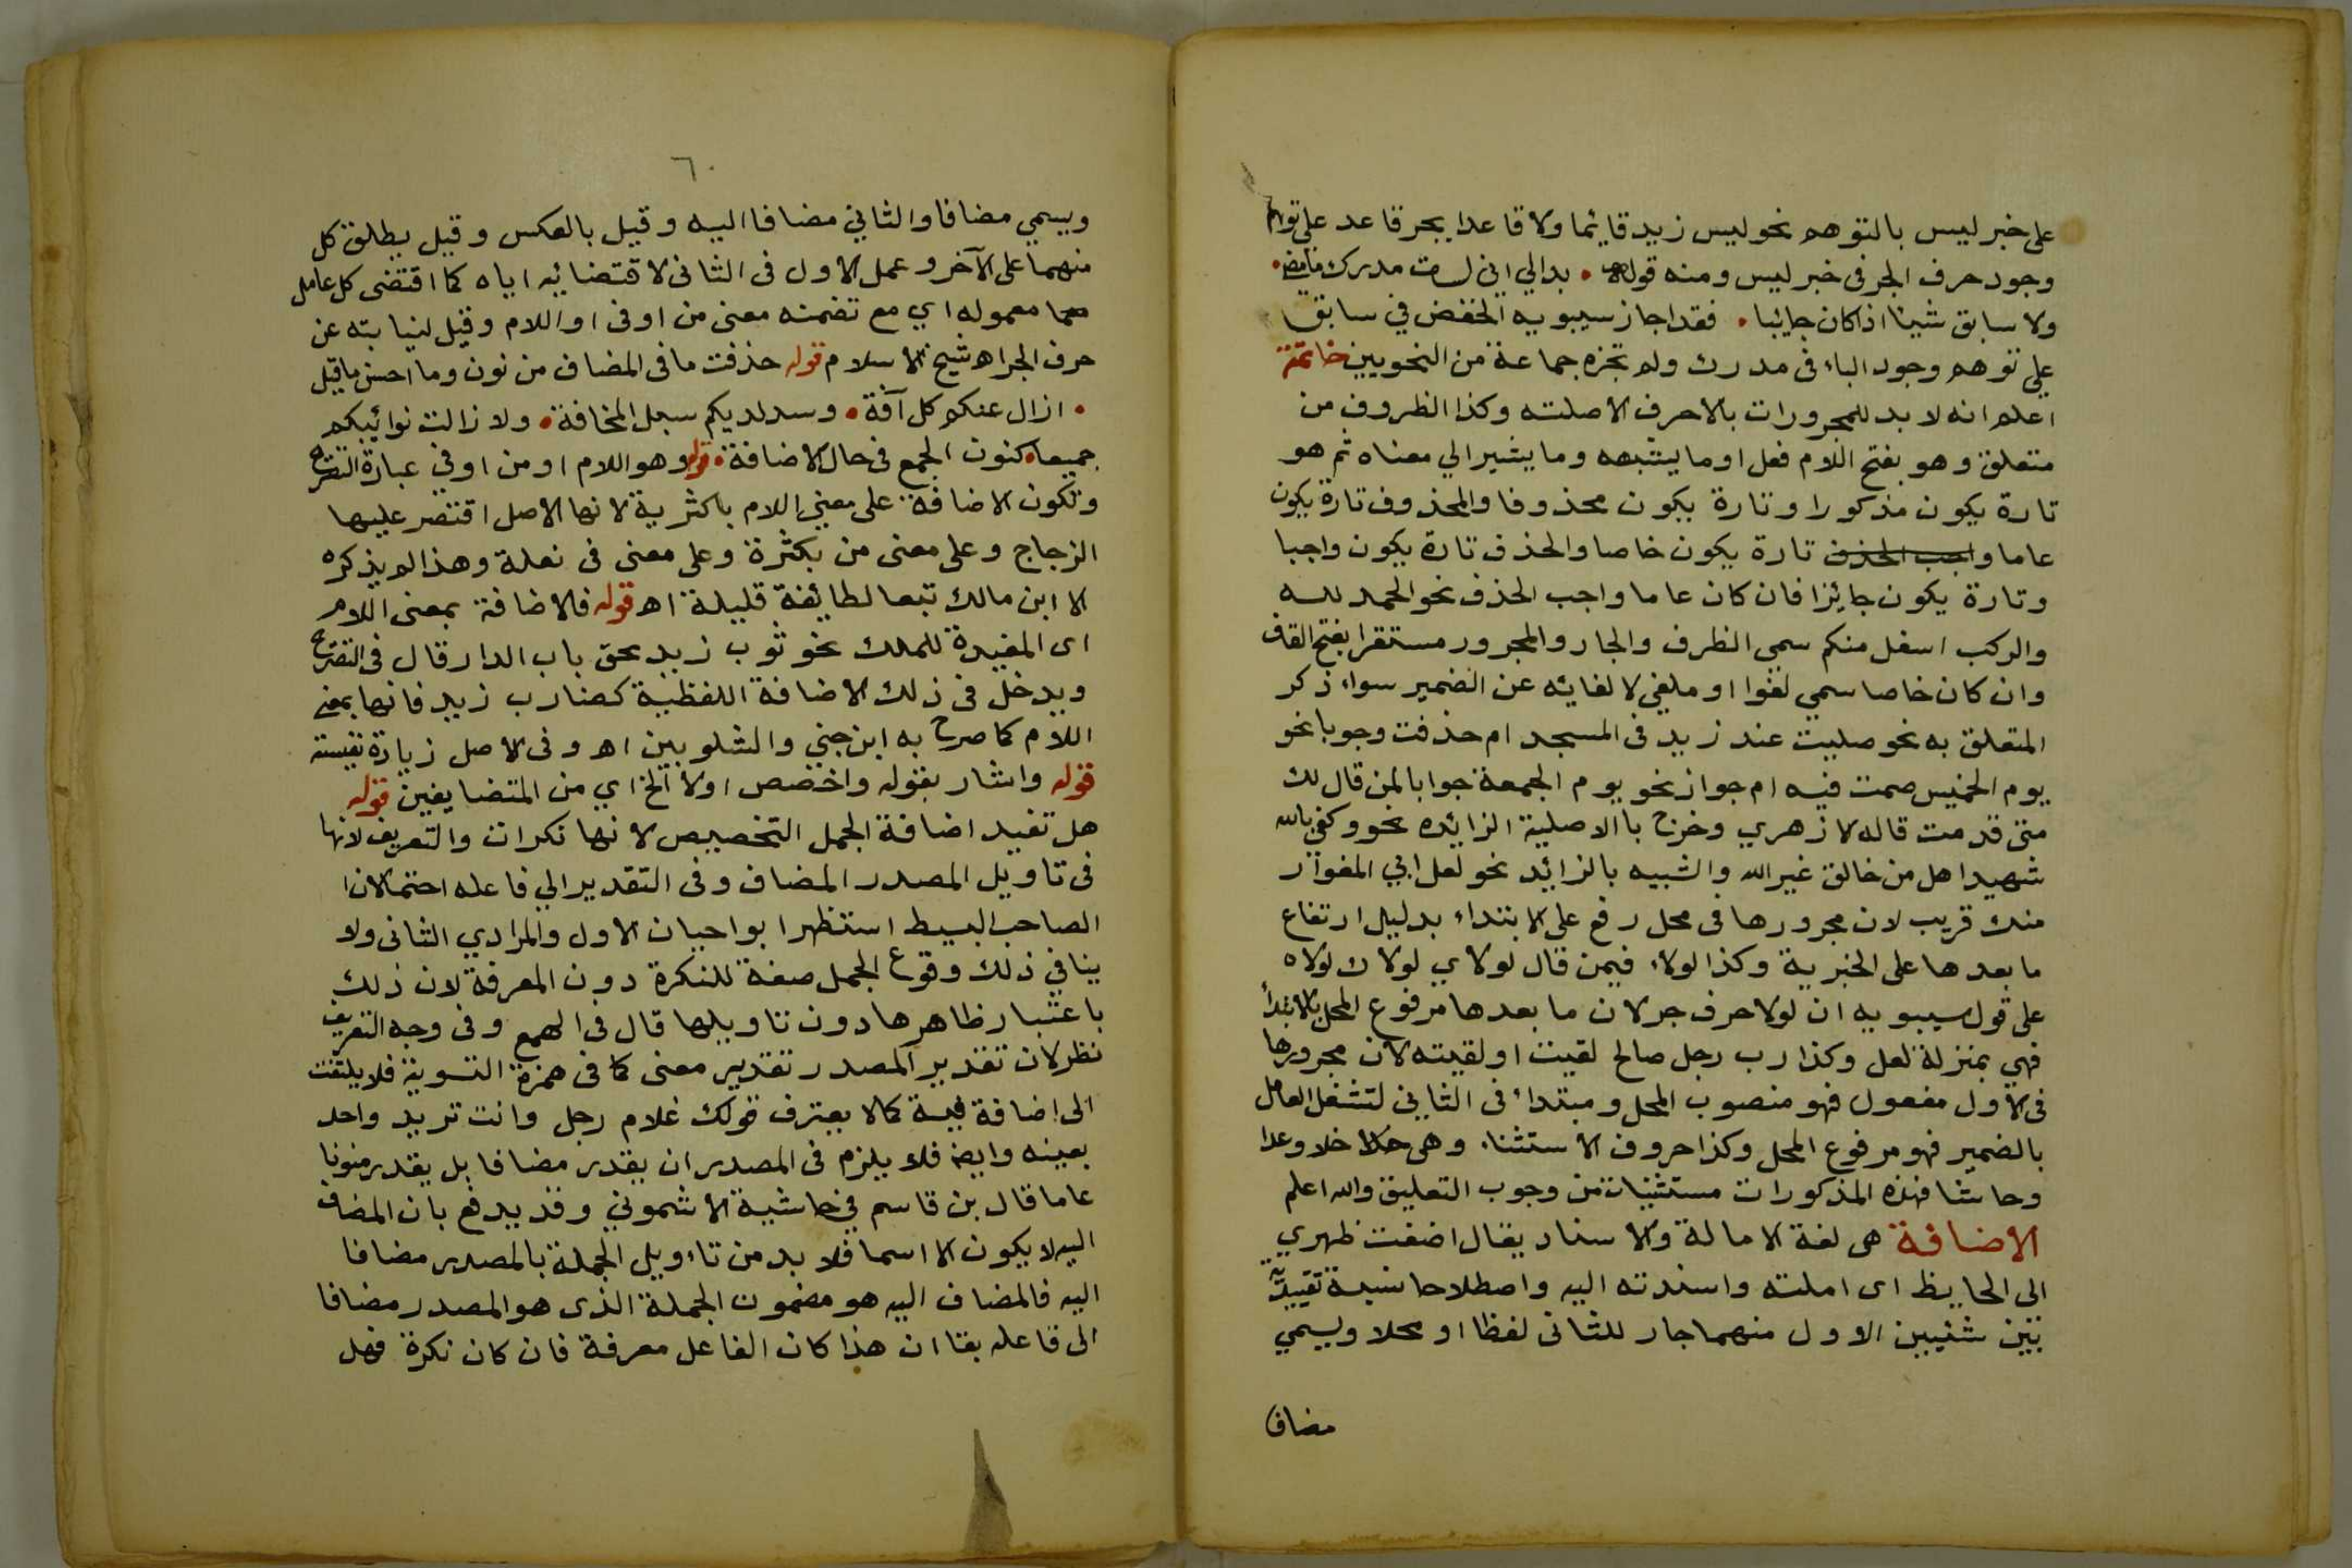 على خبر ليس بالتوهم نحو ليس زيد قائما ولا قاعدا بجر قاعد على توهم
وجود حرف الجر فى خبر ليس ومنه قوله • بدالي اني لست مدرك ما مضى •
ولا سابق شيئا اذا كان جائيا • فقد اجاز سيبويه الخفض في سابق
على توهم وجود الباء فى مدرك ولم تجزه جماعة من النحويين خاتمة
اعلم انه لا بد للمجرورات بالاحرف الاصلته وكذا الظروف من
متعلق وهو بفتح اللام فعل او ما يشبهه وما يشير الي معناه ثم هو
تارة يكون مذكورا وتارة يكون محذوفا والمحذوف تارة يكون
عاما واجب الحذف تارة يكون خاصا والحذف تارة يكون واجبا
وتارة يكون جائزا فان كان عاما واجب الحذف نحو الحمد لله
والركب اسفل منكم سمى الظرف والجار والمجرور مستقرا بفتح القاف
وان كان خاصا سمي لغوا او ملغى لالغائه عن الضمير سواء ذكر
المتعلق به نحو صليت عند زيد فى المسجد ام حذفت وجوبا نحو
يوم الخميس صمت فيه ام جوازا نحو يوم الجمعة جوابا لمن قال لك
متى قدمت قاله الازهري وخرج با الاصلية الزائده نحو وكفى بالله
شهيدا هل من خالق غير الله والشبيه بالزائد نحو لعل ابي المغوار
منك قريب لان مجرورها فى محل رفع على الابتداء بدليل ارتفاع
ما بعدها على الخبرية وكذا لولاء فيمن قال لولاي لولاك لولاه
على قول سيبويه ان لولا حرف جر لان ما بعدها مرفوع المحل بالابتدأ
فهي بمنزلة لعل وكذا رب رجل صالح لقيت او لقيته لان مجرورها
فى الاول مفعول فهو منصوب المحل ومبتداء فى الثاني لتشغل العامل
بالضمير فهو مرفوع المحل وكذا حروف الاستثناء وهى خلا وعدا
وحاشا فهذه المذكورات مستثنيات من وجوب التعليق والله اعلم
الاضافة هى لغة الامالة والاسناد يقال اضفت ظهري
الى الحايط اى املته واسندته اليه واصطلاحا نسبة تقييدية
بين شئيين الاول منهما جار للثانى لفظا او محلا ويسمي
مضافا
٦٠
ويسمي مضافا والثاني مضافا اليه وقيل بالعكس وقيل يطلق كل
منهما على الآخر وعمل الاول فى الثانى لاقتضائيه اياه كما اقتضى كل عامل
معموله اي مع تضمنه معنى من او فى او اللام وقيل لنيابته عن
حرف الجر اه شيخ الاسلام قوله حذفت ما فى المضاف من نون وما احسن ما قيل
• ازال عنكم كل آفة • وسد لديكم سبل المخافة • ولا زالت نوائبكم
جميعا • كنون الجمع فى حال الاضافة • قوله وهو اللام او من او في عبارة التصريح
وتكون الاضافة على معنى اللام باكثرية لانها الاصل اقتصر عليها
الزجاج وعلى معنى من بكثرة وعلى معنى فى نعلة وهذا لم يذكره
الا ابن مالك تبعا لطائفة قليلة اه قوله فالاضافة بمعنى اللام
اى المفيدة للملك نحو ثوب زيد حق باب الدار قال فى التصريح
ويدخل فى ذلك الاضافة اللفظية كضارب زيد فانها بمعنى
اللام كما صرح به ابن جني والشلوبين اه وفى الاصل زيادة نفيسة
قوله واشار بقوله واخصص اولا الخ اي من المتضايفين قوله
هل تفيد اضافة الجمل التخصيص لانها نكرات والتعريف لانها
فى تاويل المصدر المضاف وفى التقدير الي فاعله احتمالان
الصاحب البسيط استظهر ابو احيان الاول والمرادي الثانى ولا
ينافي ذلك وقوع الجمل صفة للنكرة دون المعرفة لان ذلك
باعتبار ظاهرها دون تاويلها قال فى الهمع وفى وجه التعريف
نظر لان تقدير المصدر تقدير معنى كما فى همزة التسوية فلا يلتفت
الى اضافة فيه كما لا يعترف قولك غلام رجل وانت تريد واحد
بعينه وايضا فلا يلزم فى المصدر ان يقدر مضافا بل يقدر منونا
عاما قال بن قاسم في حاشية الاشموني وقد يدفع بان المضاف
اليه لا يكون الا اسما فلا بد من تاويل الجملة بالمصدر مضافا
اليه فالمضاف اليه هو مضمون الجملة الذى هو المصدر مضافا
الى فاعله بقا ان هذا كان الفاعل معرفة فان كان نكرة فهل